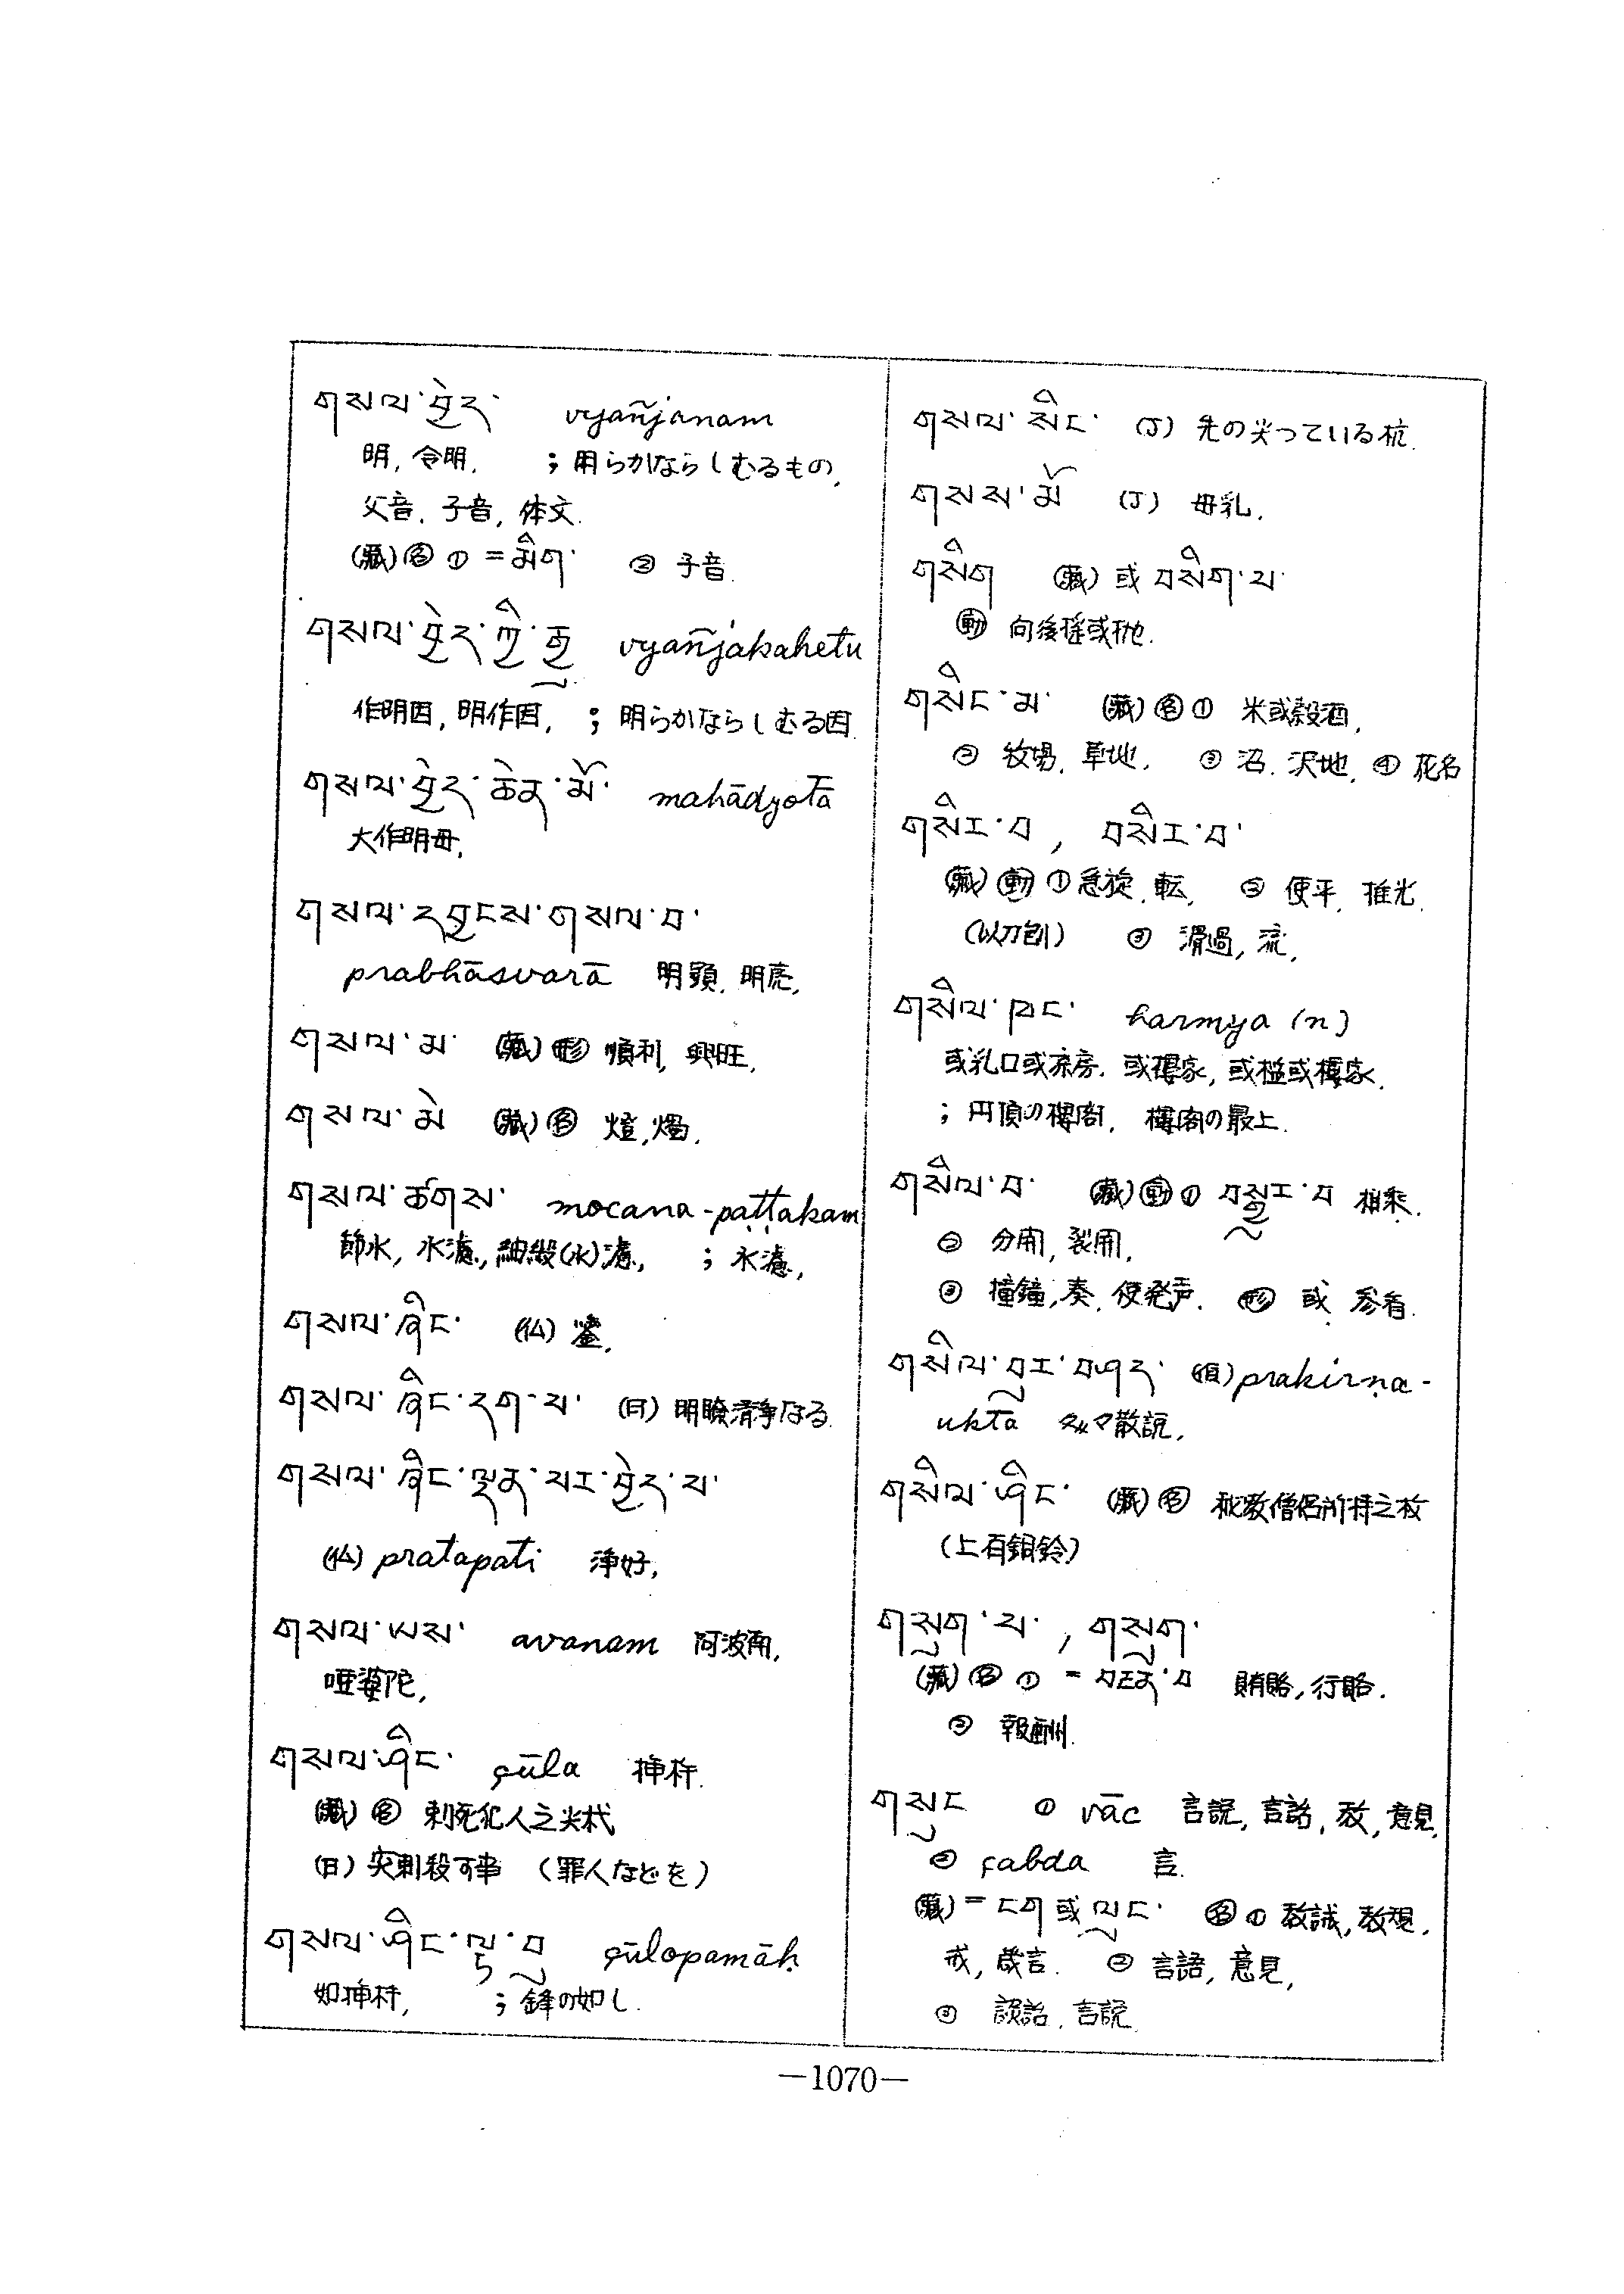 གསལ་བྱེད་ vyañjanam
明, 令明. ; 明らかならしむるもの,
父音, 子音, 体文.
(蔵) 名 ① = མིག་ ② 子音.
གསལ་བྱེད་ཀྱི་རྒྱུ vyañjakahetu
作明因, 明作因, ; 明らかならしむる因.
གསལ་བྱེད་ཆེན་མོ་ mahādyotā
大作明母,
གསལ་དབྱངས་གསལ་བ་
prabhāsvarā 明顕, 明亮,
གསལ་མ་ (蔵) 形 順利, 興旺,
གསལ་མེ (蔵) 名 燈, 燭,
གསལ་ཚགས་ mocana-paṭṭakam
節水, 水濾, 紬緞(水)濾, ; 水濾,
གསལ་ཞིང་ (仏) 鎣,
གསལ་ཞིང་དག་པ་ (目) 明瞭清浄なる.
གསལ་ཞིང་ལྡན་པར་བྱེད་པ་
(仏) pratapati 浄好,
གསལ་ཡས་ avanam 阿波南,
唖婆陀,
གསལ་ཤིང་ çūla 挿杵.
(蔵) 名 刺死犯人之尖杙
(目) 突刺殺可事 (罪人などを)
གསལ་ཤིང་ལྟ་བུ çūlopamāḥ
如挿杵, ; 鋒の如し.
གསལ་སིང་ (J) 先の尖っている杭.
གསས་མོ (J) 母乳.
གསིག (蔵) 或 བསིག་པ་
動 向後揺或抛.
གསིང་མ་ (蔵) 名 ① 米或穀酒,
② 牧場, 草地, ③ 沼, 沢地, ④ 花名
གསིར་བ, བསིར་བ་
(蔵) 動 ① 急旋, 転, ② 使平, 推光.
(以刀刨) ③ 滑過, 流,
གསིལ་ཁང་ harmya (n)
或乳口或 或楼家, 或 或楼家.
; 円頂の樓閣, 樓閣の最上.
གསིལ་བ་ (蔵) 動 ① བསྒྱུར་བ 相乗.
② 分開, 裂開,
③ 撞鐘, 奏, 使発声. 形 或 参看.
གསིལ་བུར་བཤད་ prakirṇa-
uktā 多々散説,
གསིལ་ཤིང་ (蔵) 名 秘教僧侶所持之杖
(上有銅鈴)
གསུག་པ་, གསུག་
(蔵) 名 ① = བརྔན་བ 賄賂, 行賂.
② 報酬.
གསུང ① vāc 言説, 言語, 教, 意見,
② çabda 言.
(蔵) = ངག 或 ལུང་ 名 ① 教誡, 教規,
戒, 箴言. ② 言語, 意見,
③ 談話, 言説.
—1070—